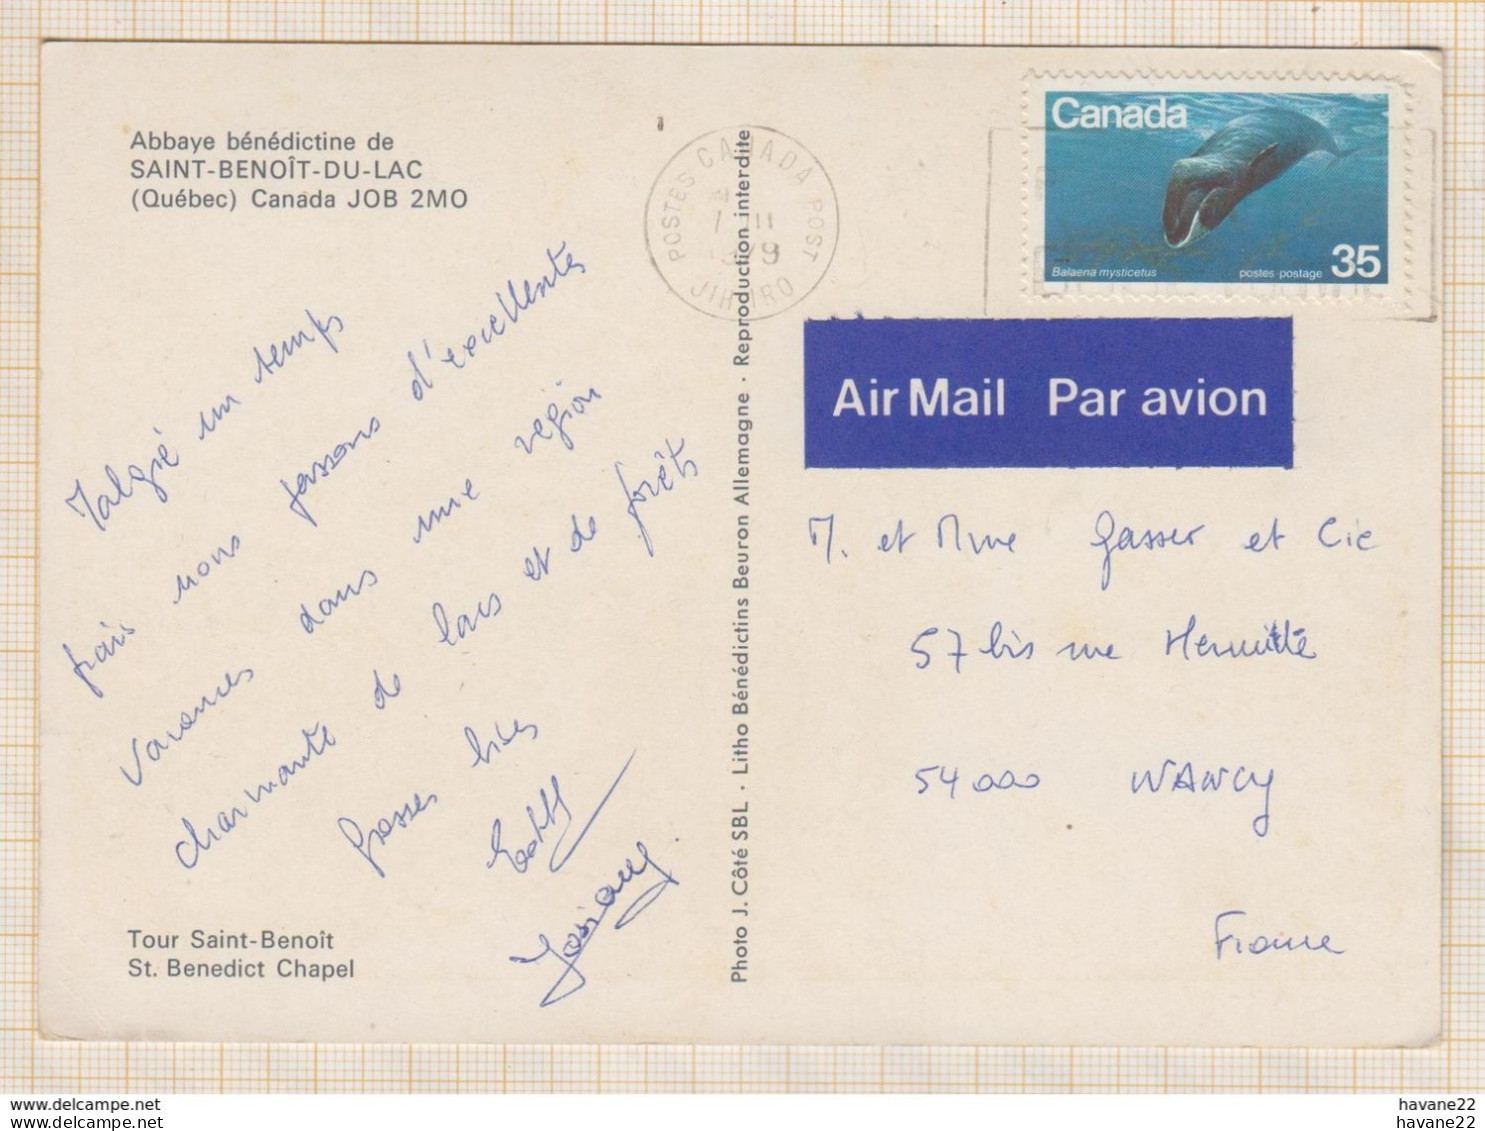 Abbaye bénédictine de
SAINT-BENOÎT-DU-LAC
(Québec) Canada JOB 2MO
Malgré un temps
frais nous passons d'excellentes
vacances dans une région
charmante de lacs et de forêts
Grosses bises
Edith
Josiane
Tour Saint-Benoît
St. Benedict Chapel
Photo J. Côté SBL · Litho Bénédictins Beuron Allemagne · Reproduction interdite
POSTES CANADA POST
Canada
Balaena mysticetus
postes-postage 35
Air Mail Par avion
M. et Mme Gasser et Cie
57 bis rue Hermitte
54000 NANCY
France
havane22
havane22
havane22
havane22